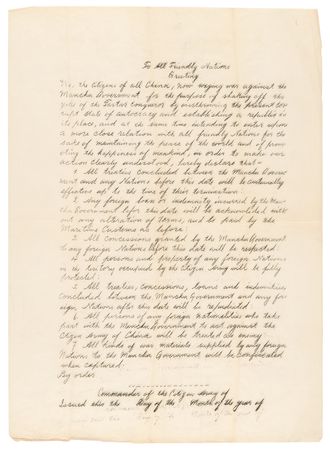 To All Friendly Nations
Greeting
We, the Citizens of all China, now waging war against the
Manchu Government for the purpose of shaking off the
yoke of the Tartar conqueror by overthrowing the present cor
rupt state of autocracy and establishing a republic in
its place, and at the same time intending to enter upon
a more close relation with all friendly Nations for the
sake of maintaining the peace of the world and of pro
moting the happiness of mankind, in order to make our
action clearly understood, hereby declare that:-
1. All treaties concluded between the Manchu Govern
ment and any Nations before this date will be continually
effective up to the time of their termination
2. Any foreign loan or indemnity incurred by the Man
chu Government before this date will be acknowledged with
out any alteration of terms, and to be paid by the
Maritime Customs as before;
3. All concessions granted by the Manchu Government
to any foreign Nations before this date will be respected.
4. All persons and property of any foreign Nations
in the territory occupied by the Citizen Army will be fully
protected;
5. All treaties, concessions, loans and indemnities
concluded between the Manchu Government and any for
eign Nations after this date will be repudiated
6. All persons of any foreign nationalities who take
part with the Manchu Government to act against the
Citizen Army of China will be treated as enemy.
7. All kinds of war materials supplied by any foreign
Nations to the Manchu Government will be confiscated
when captured.
By order
Commander of the Citizen Army of
Issued this the Day of the Month of the year of